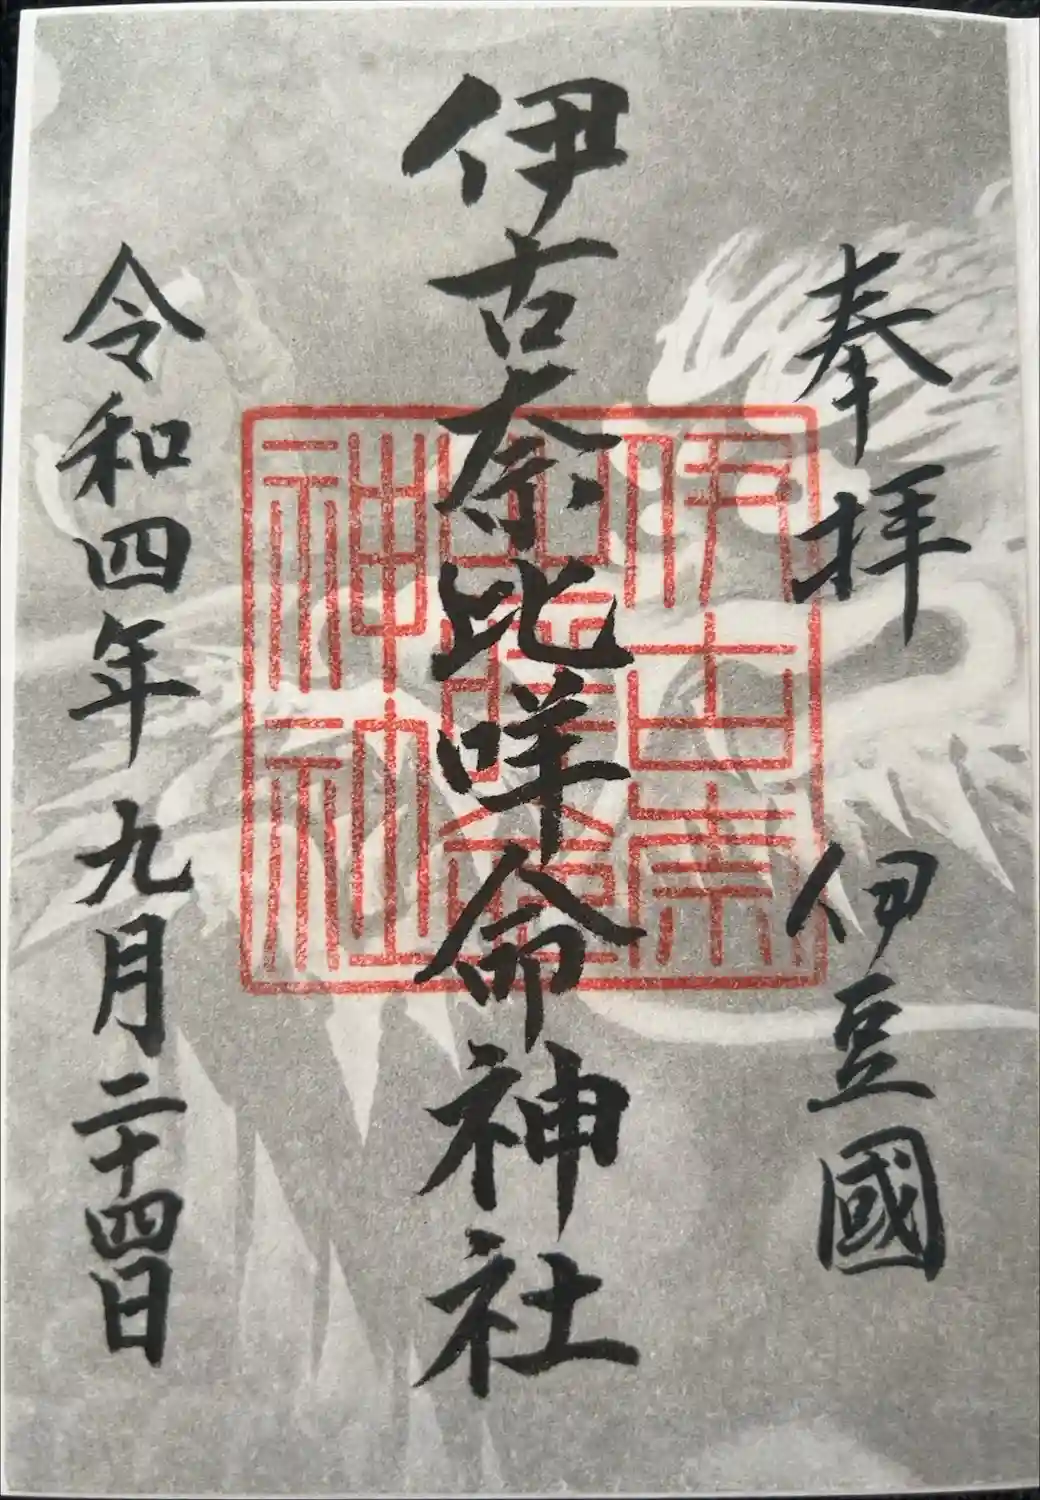 奉拝 伊豆國
伊古奈比咩命神社
令和四年九月二十四日
伊古奈
比咩命
神社